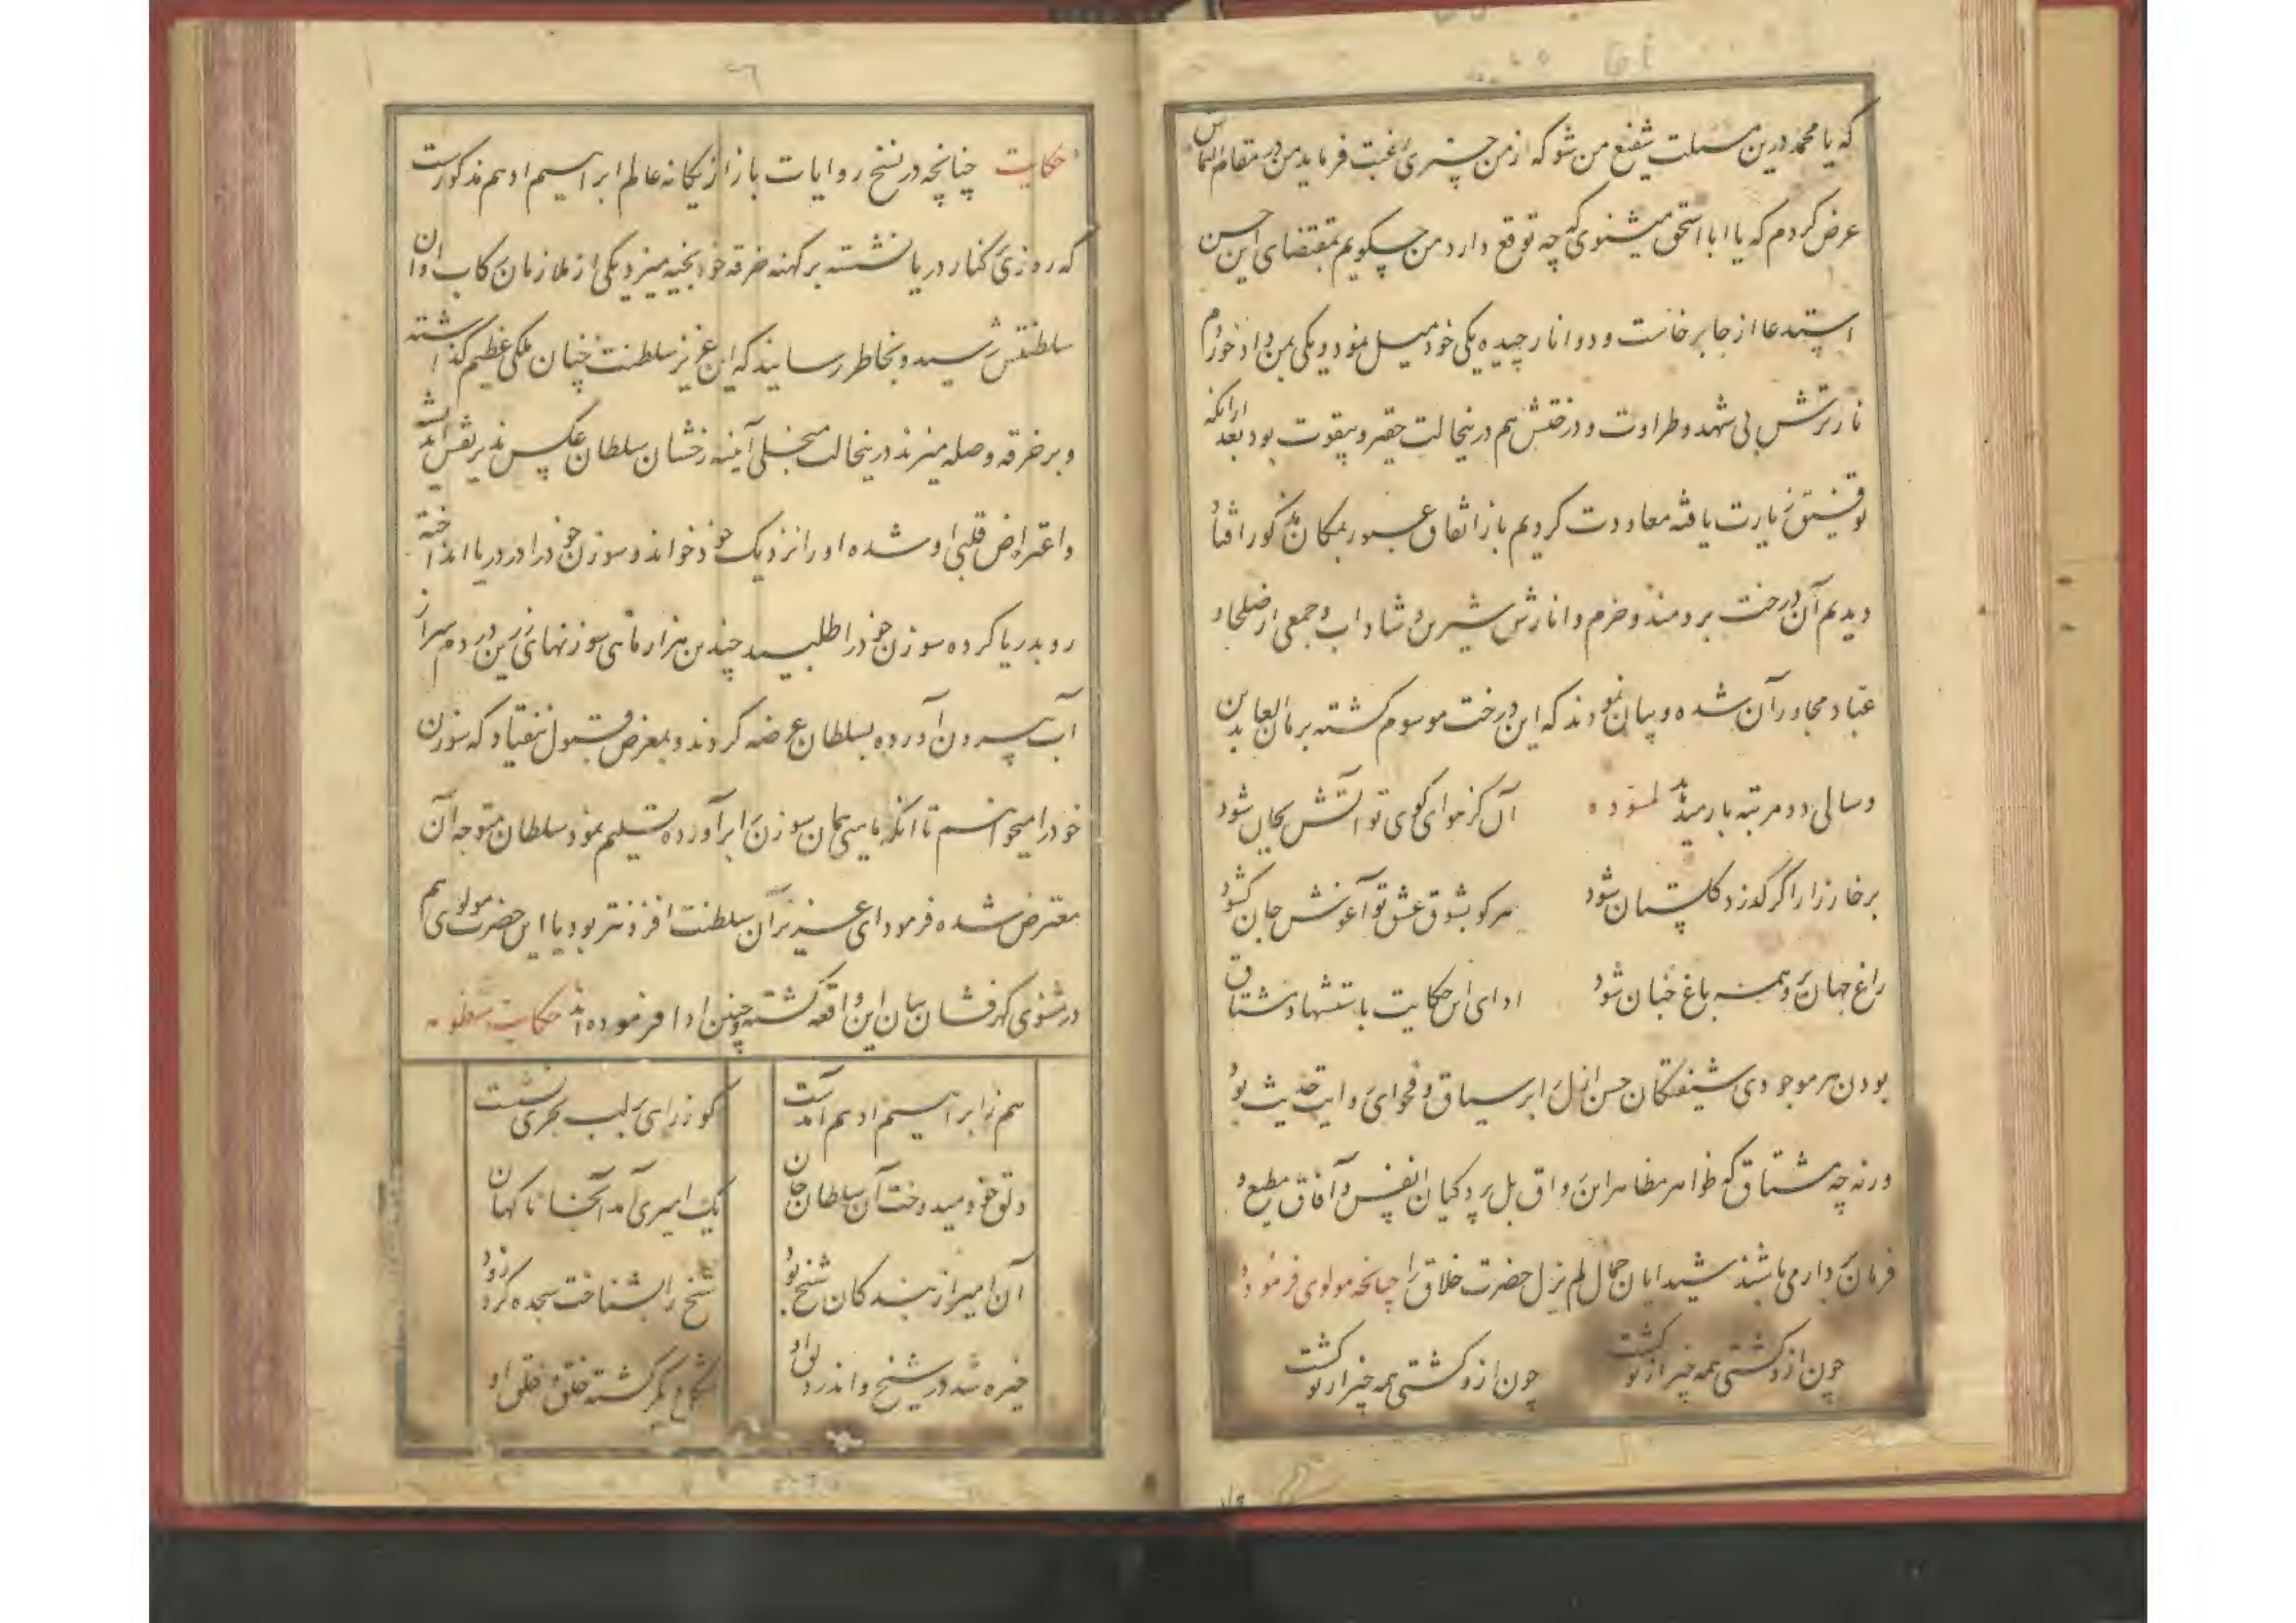 که یا محمد درین مسئلت شفیع من شو که از من چیزی رغبت فرماید من در مقام التماس
عرض کردم که یا ابا اسحق میشنوی که چه توقع دارد من چکویم بمقتضای این حسن
استدعا از جا برخاست و دو انار چیده یکی خود میل نمود و یکی بمن داد خوردم
نار ترش بی شهد و طراوت و درختش هم درینحالت حقیر و بیقوت بود بعد ازانکه
توفیق زیارت یافته معاودت کردیم باز اتفاق عبور بمکان مذکور افتاد
دیدیم آن درخت برومند و خرم و انارش شیرین و شاداب و جمعی از صلحا و
عباد مجاور آن شده و بیان نمودند که این درخت موسوم کشته برمان العابدین
و سالی دو مرتبه بار میدهد لمسوده آن کز هوای کوی تو آتش بجان شود
بر خارزار اگر گذرد کلستان شود هر کو بشوق عشق تو آغوش جان کشود
راغ جهان بر همه باغ جنان شود ادای این حکایت باستشهاد مشتاق
بودن هر موجودی شیفتکان حسن ازل را بر سیاق و فحوای روایت حدیث بود
ورنه چه مشتاق که ظواهر مظاهر این رواق بل پردکیان انفس و آفاق مطیع و
فرمان بردار می باشند شیدایان جمال لم یزل حضرت خلاق را چنانچه مولوی فرموده
چون ازو کشتی همه چیز از تو کشت چون ازو کشتی همه چیز از تو کشت
۲۶
حکایت چنانچه در نسخ روایات باز از یکانه عالم ابراهیم ادهم مذکورست
که روزی کنار دریا نشسته بر کهنه خرقه خود بخیه میزد یکی از ملازمان رکاب اوان
سلطنتش رسید و بخاطر رسانید که این عزیز سلطنت چنان ملکی عظیم گذاشته
و بر خرقه وصله میزند درینحالت منجلی آئینه رخشان سلطان عکس پذیر نقش اندیشه
و اعتراض قلبی او شده او را نزدیک خود خواند و سوزن خود را در دریا انداخته
رو بدریا کرده سوزن خود را طلبید چندین هزار ماهی سوزنهای زرین در دم سر از
آب بیرون آورده بسلطان عرضه کردند و بمعرض قبول نیفتاد که سوزن
خود را میخواهم تا آنکه ماهی همان سوزن را برآورده تسلیم نمود سلطان متوجه آن
معترض شده فرمود ای عزیز آن سلطنت افزونتر بود یا این حضرت مولوی هم
در مثنوی کهرفشان بیان این واقعه کشته و چنین ادا فرموده‌اند حکایت منظومه
هم ز ابراهیم ادهم آمدست کو ز راهی بر لب بحری نشست
دلق خود میدوخت آن سلطان جان یک امیری آمد آنجا ناکهان
آن امیر از بندکان شیخ بود شیخ را بشناخت سجده کرد زود
خیره شد در شیخ و اندر دلق او شکل دیکر کشته خلق و خلق او